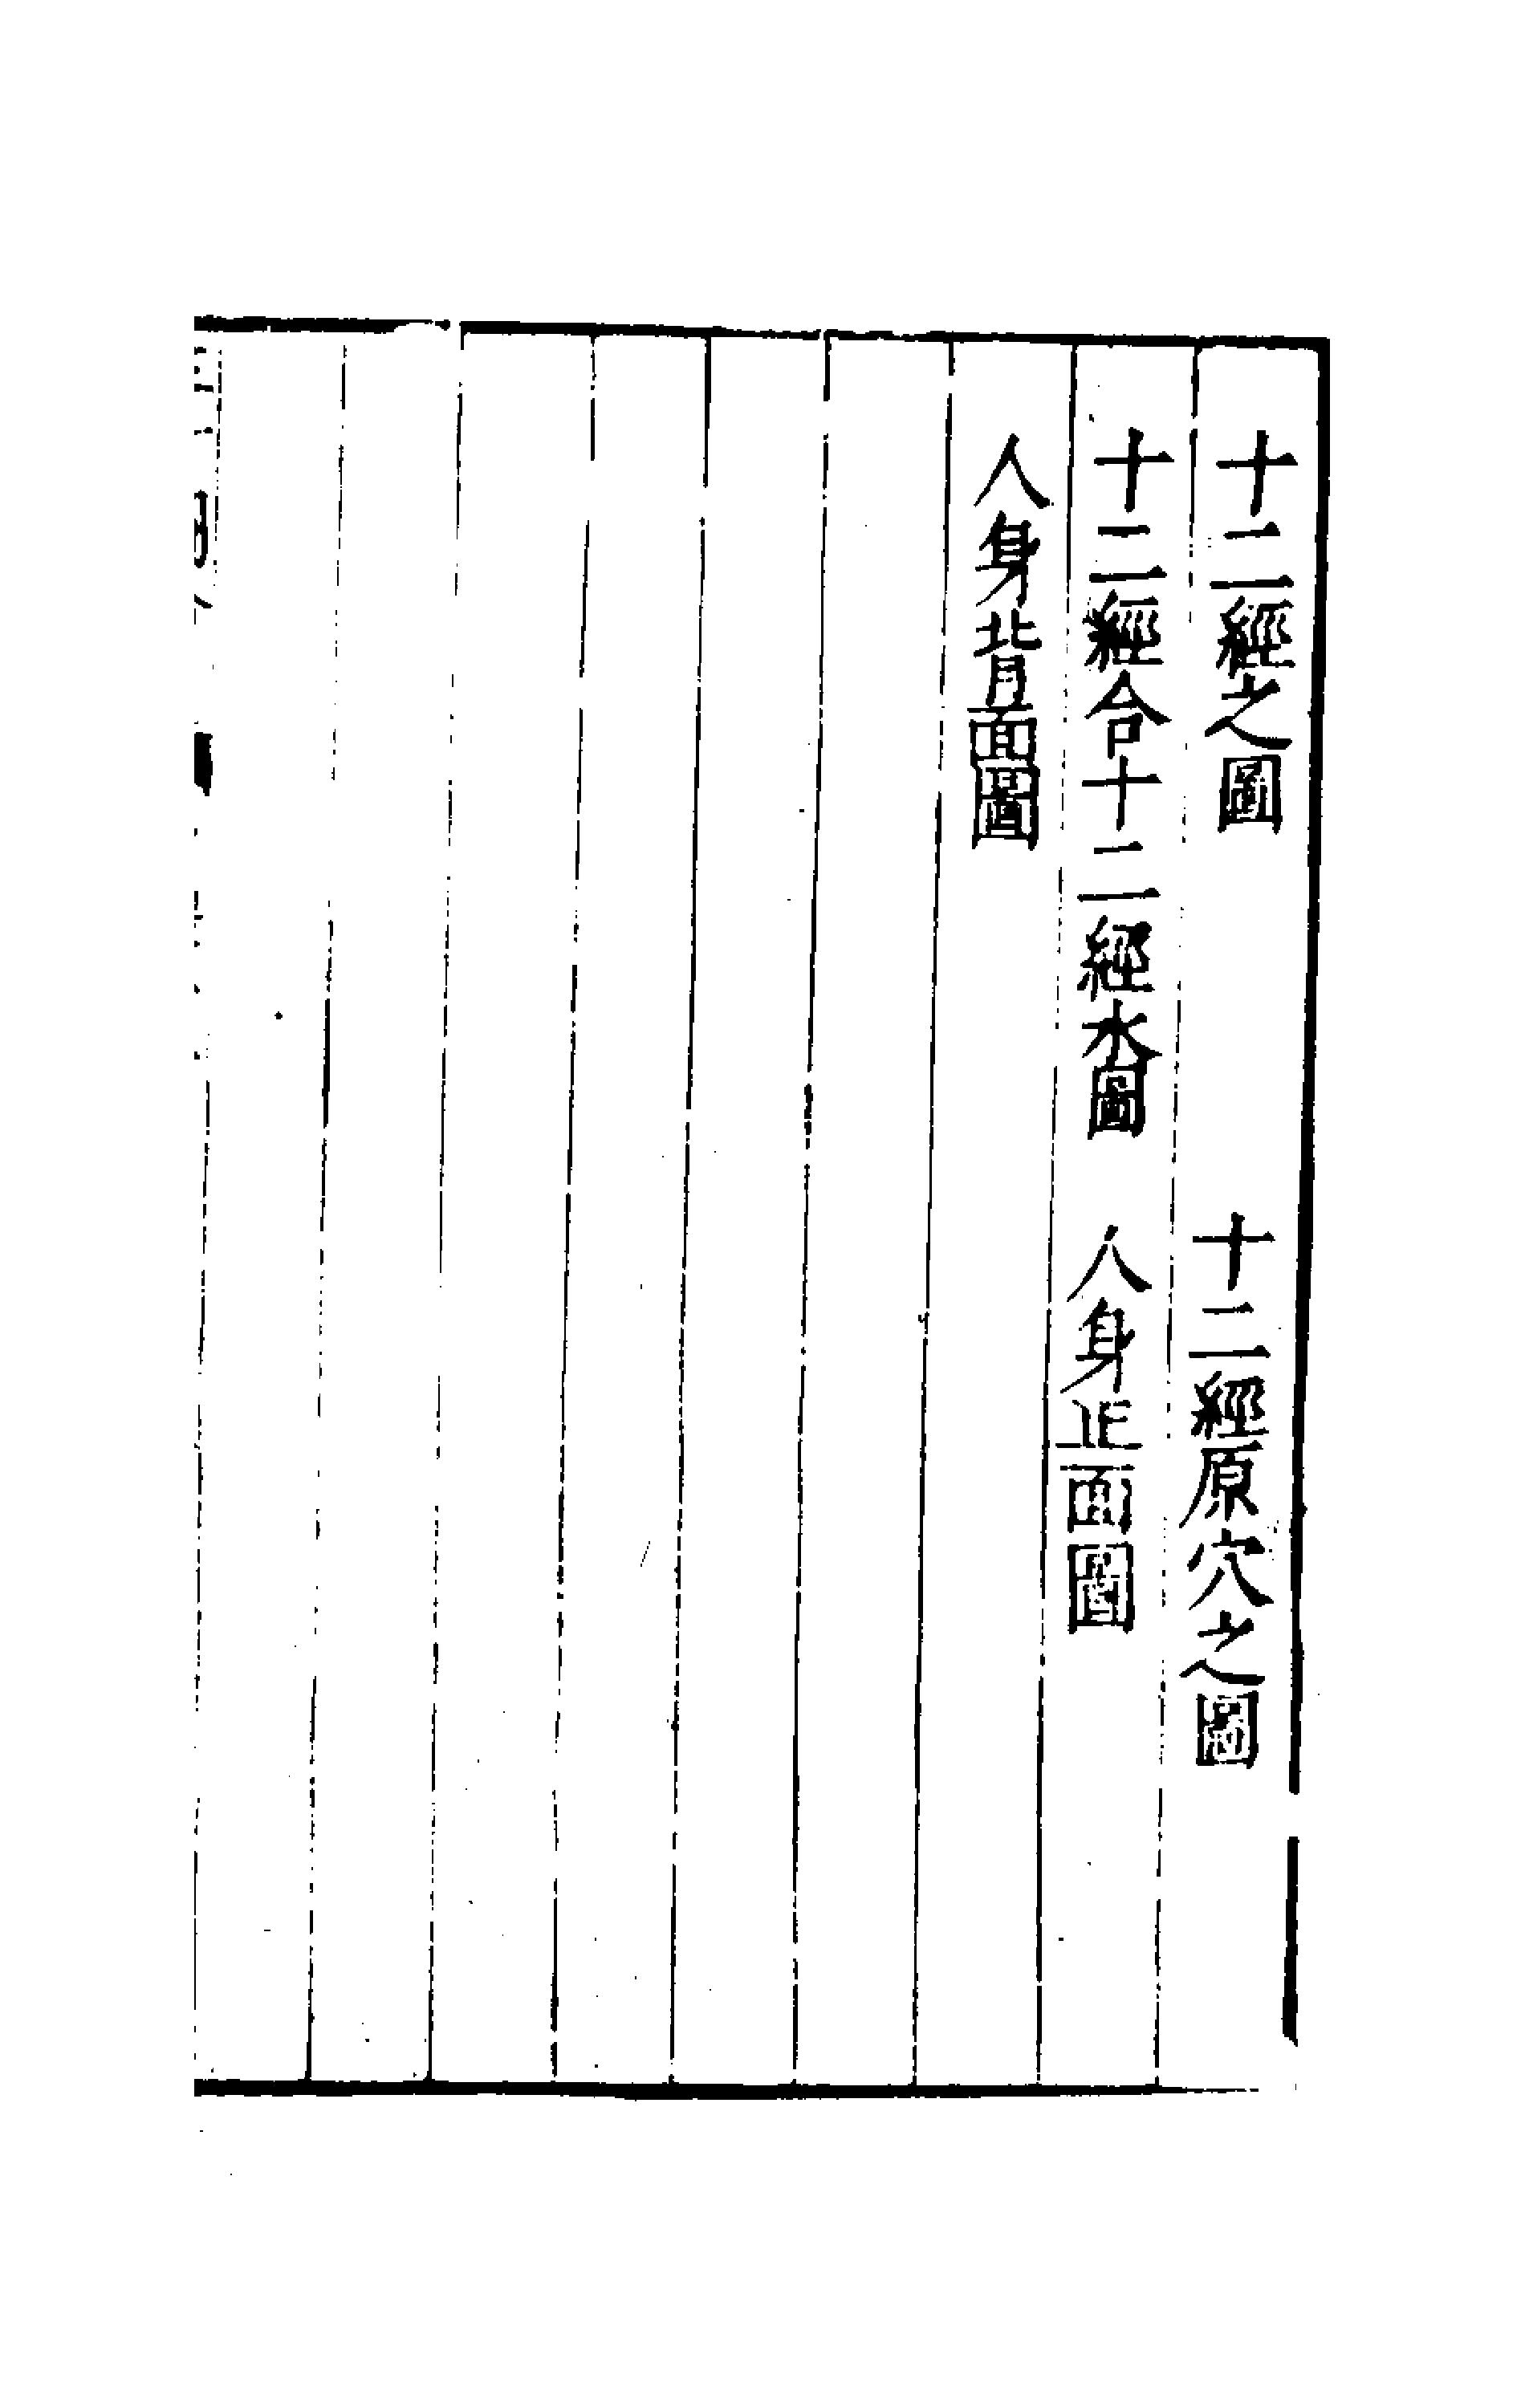 十二經之圖　十二經原穴之圖
十二經合十二經水圖　人身正面圖
人身背面圖